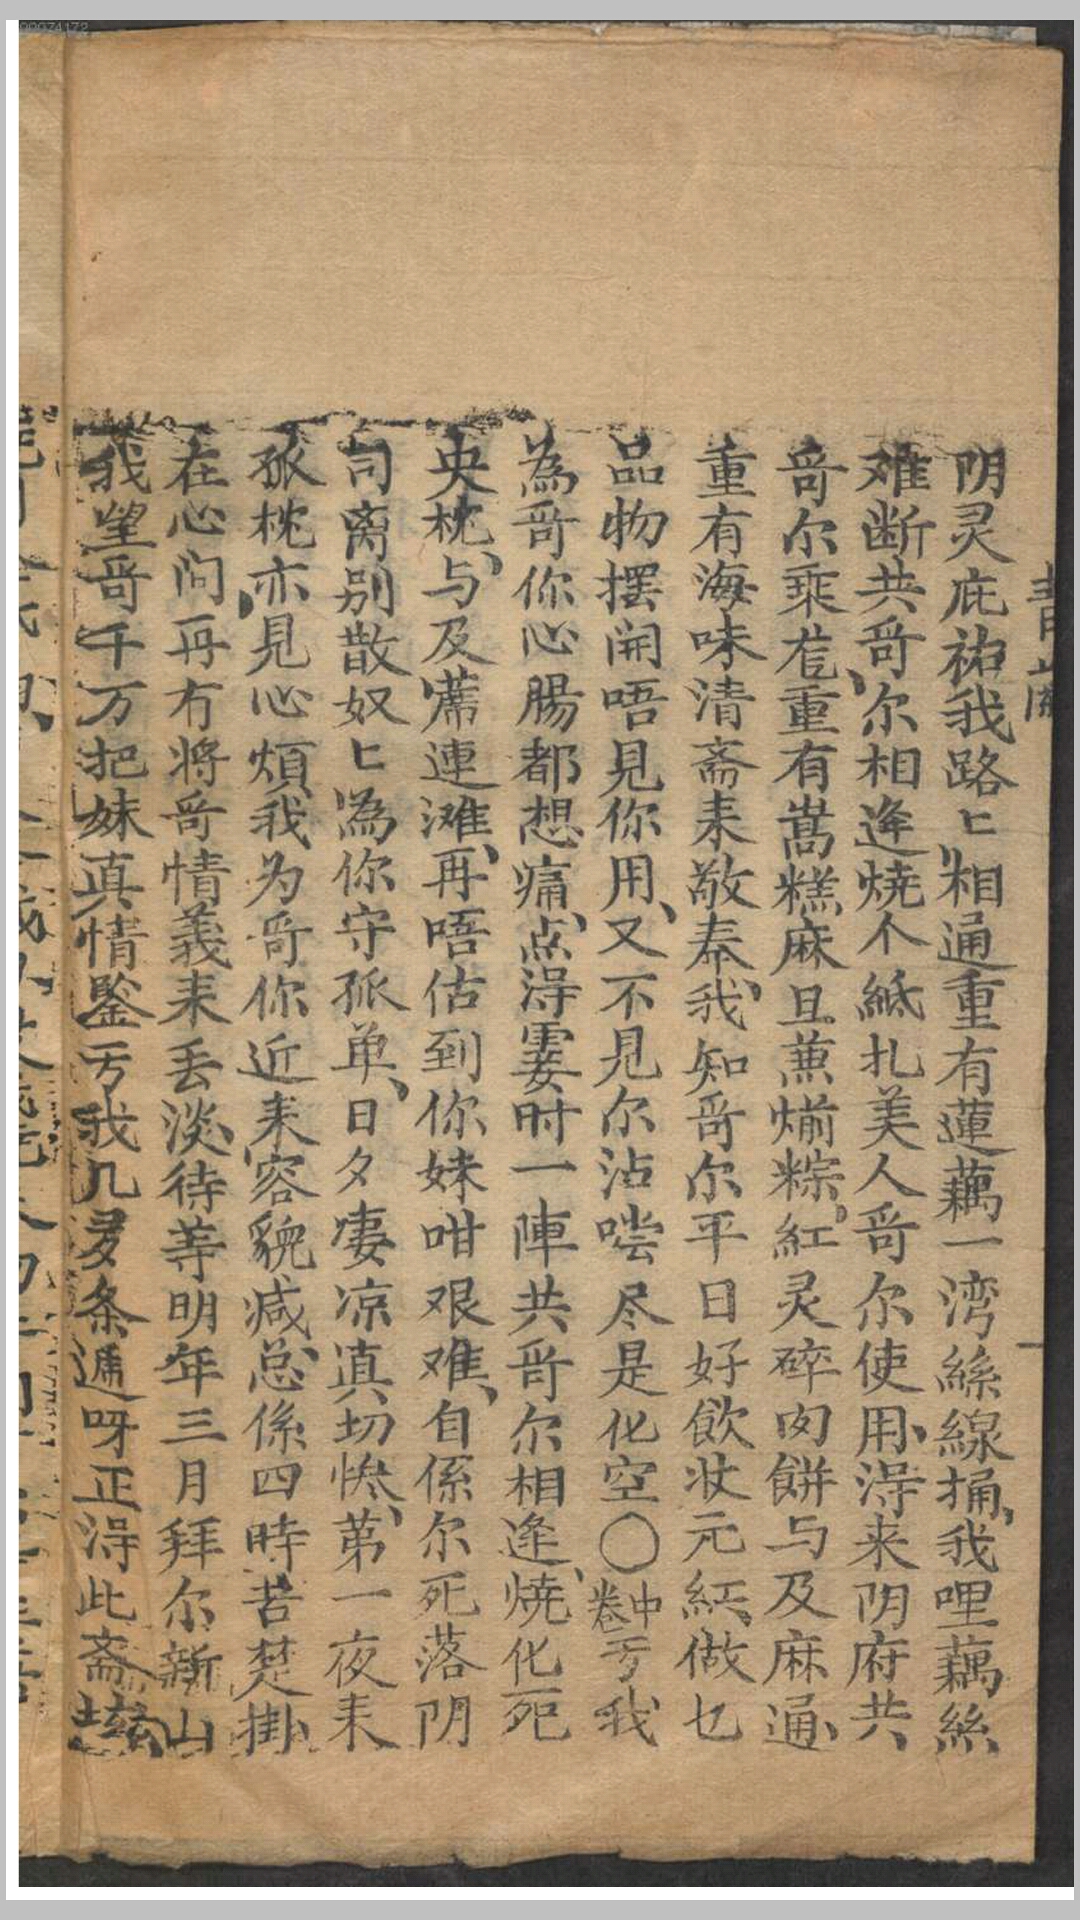 阴灵庇祐我路匕相通重有蓮藕一湾絲線捅、我哩藕絲
难断共哥尔相逢燒个紙扎美人哥尔使用、淂来阴府共
哥尔乘、重有嵩糕麻旦蕉煎粽、紅灵碎肉餅与及麻通、
重有海味清斋耒敬奉、我知哥尔平日好飲状元紅、做乜
品物摆開唔見你用、又不見尔沾嚐尽是化空〇中卷亏我
為哥你心腸都想痛、点淂霎时一陣共哥尔相逢、燒化死
央枕、与及蓆連滩、再唔估到你妹咁艰难、自係尔死落阴
司离别散奴匕為你守孤单、日夕凄凉真切惨、第一夜耒
孤枕亦見心煩、我为哥你近耒容貌减、总係四時苦楚掛
在心问、再冇将哥情義耒丢淡、待等明年三月拜尔新山
我望哥千万把妹真情鑒亏我几多条逓呀正淂此斋